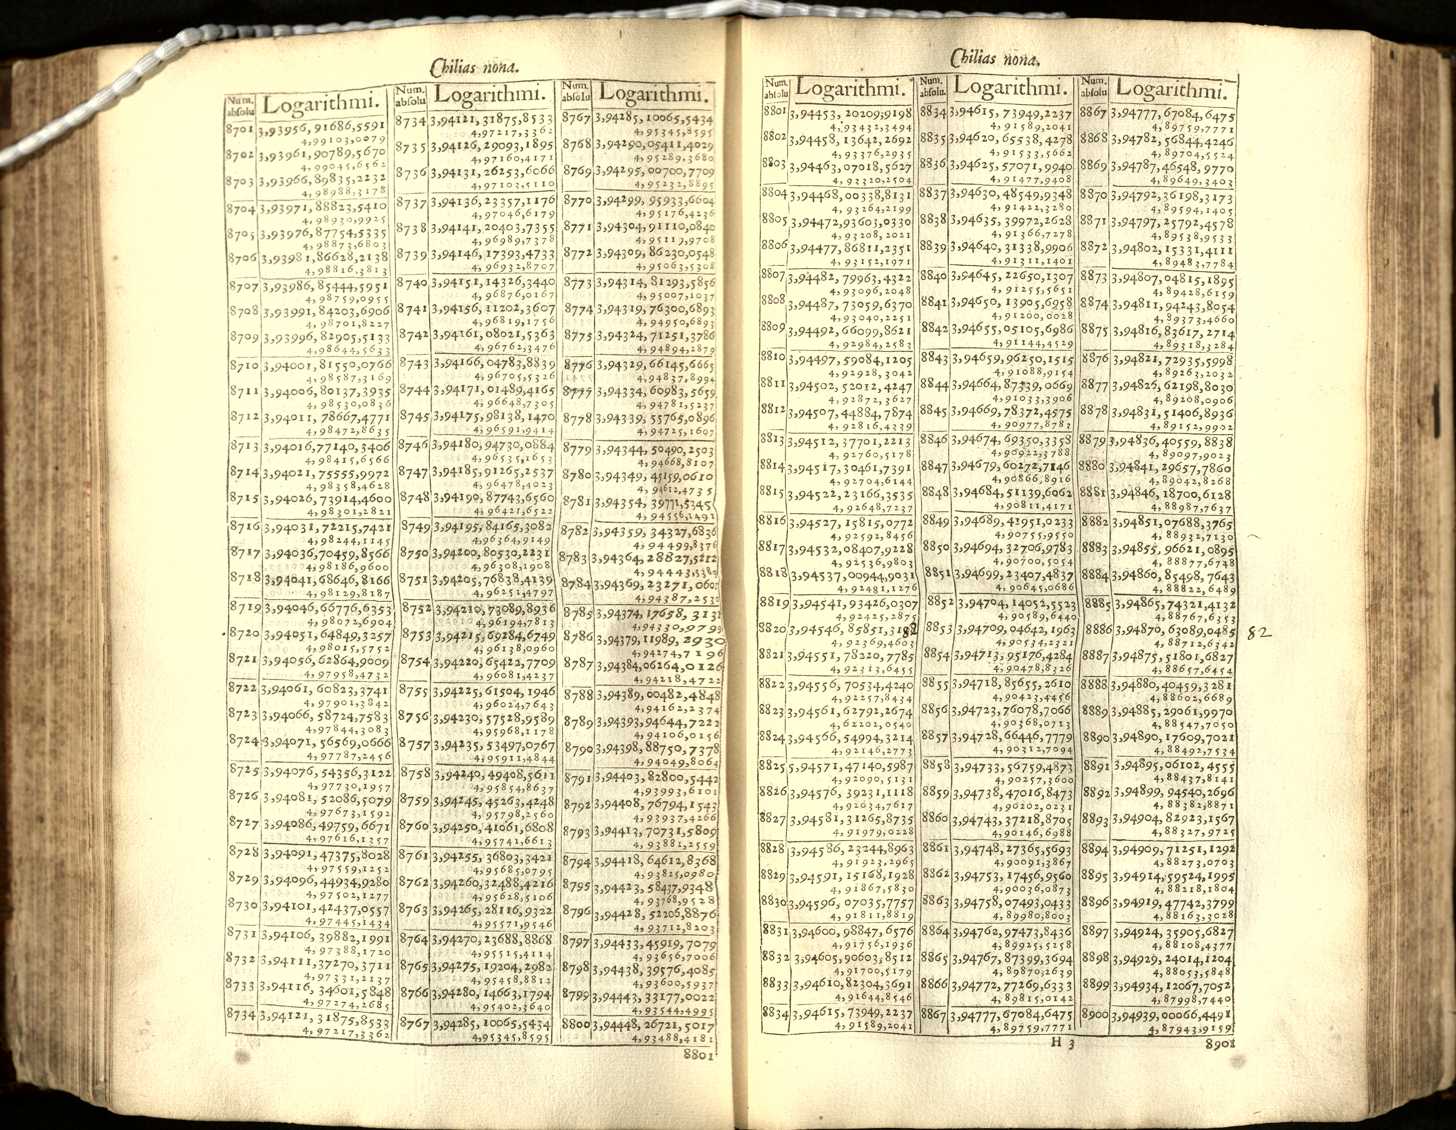 Chilias nona.
Num. absolu
Logarithmi.
8701 3,93956,91686,5591
4,99103,0079
8702 3,93961,90789,5670
4,99045,6562
8703 3,93966,89835,2232
4,98988,3178
8704 3,93971,88823,5410
4,98930,9925
8705 3,93976,87754,5335
4,98873,6803
8706 3,93981,86628,2138
4,98816,3813
8707 3,93986,85444,5951
4,98759,0955
8708 3,93991,84203,6906
4,98701,8227
8709 3,93996,82905,5133
4,98644,5633
8710 3,94001,81550,0766
4,98587,3169
8711 3,94006,80137,3935
4,98530,0836
8712 3,94011,78667,4771
4,98472,8635
8713 3,94016,77140,3406
4,98415,6566
8714 3,94021,75555,9972
4,98358,4628
8715 3,94026,73914,4600
4,98301,2821
8716 3,94031,72215,7421
4,98244,1145
8717 3,94036,70459,8566
4,98186,9600
8718 3,94041,68646,8166
4,98129,8187
8719 3,94046,66776,6353
4,98072,6904
8720 3,94051,64849,3257
4,98015,5752
8721 3,94056,62864,9009
4,97958,4732
8722 3,94061,60823,3741
4,97901,3842
8723 3,94066,58724,7583
4,97844,3083
8724 3,94071,56569,0666
4,97787,2456
8725 3,94076,54356,3122
4,97730,1957
8726 3,94081,52086,5079
4,97673,1592
8727 3,94086,49759,6671
4,97616,1357
8728 3,94091,47375,8028
4,97559,1252
8729 3,94096,44934,9280
4,97502,1277
8730 3,94101,42437,0557
4,97445,1434
8731 3,94106,39882,1991
4,97388,1720
8732 3,94111,37270,3711
4,97331,2137
8733 3,94116,34601,5848
4,97274,2685
8734 3,94121,31875,8533
4,97217,3362
Num. absolu
Logarithmi.
8734 3,94121,31875,8533
4,97217,3362
8735 3,94126,29093,1895
4,97160,4171
8736 3,94131,26253,6066
4,97103,5110
8737 3,94136,23357,1176
4,97046,6179
8738 3,94141,20403,7355
4,96989,7378
8739 3,94146,17393,4733
4,96932,8707
8740 3,94151,14326,3440
4,96876,0167
8741 3,94156,11202,3607
4,96819,1756
8742 3,94161,08021,5363
4,96762,3476
8743 3,94166,04783,8839
4,96705,5326
8744 3,94171,01489,4165
4,96648,7305
8745 3,94175,98138,1470
4,96591,9414
8746 3,94180,94730,0884
4,96535,1653
8747 3,94185,91265,2537
4,96478,4023
8748 3,94190,87743,6560
4,96421,6522
8749 3,94195,84165,3082
4,96364,9149
8750 3,94200,80530,2231
4,96308,1908
8751 3,94205,76838,4139
4,96251,4797
8752 3,94210,73089,8936
4,96194,7813
8753 3,94215,69284,6749
4,96138,0960
8754 3,94220,65422,7709
4,96081,4237
8755 3,94225,61504,1946
4,96024,7643
8756 3,94230,57528,9589
4,95968,1178
8757 3,94235,53497,0767
4,95911,4844
8758 3,94240,49408,5611
4,95854,8637
8759 3,94245,45263,4248
4,95798,2560
8760 3,94250,41061,6808
4,95741,6613
8761 3,94255,36803,3421
4,95685,0795
8762 3,94260,32488,4216
4,95628,5106
8763 3,94265,28116,9322
4,95571,9546
8764 3,94270,23688,8868
4,95515,4114
8765 3,94275,19204,2982
4,95458,8812
8766 3,94280,14663,1794
4,95402,3640
8767 3,94285,10065,5434
4,95345,8595
Num. absolu
Logarithmi.
8767 3,94285,10065,5434
4,95345,8595
8768 3,94290,05411,4029
4,95289,3680
8769 3,94295,00700,7709
4,95232,8895
8770 3,94299,95933,6604
4,95176,4236
8771 3,94304,91110,0840
4,95119,9708
8772 3,94309,86230,0548
4,95063,5308
8773 3,94314,81293,5856
4,95007,1037
8774 3,94319,76300,6893
4,94950,6893
8775 3,94324,71251,3786
4,94894,2879
8776 3,94329,66145,6665
4,94837,8994
8777 3,94334,60983,5659
4,94781,5237
8778 3,94339,55765,0896
4,94725,1607
8779 3,94344,50490,2503
4,94668,8107
8780 3,94349,45159,0610
4,94612,4735
8781 3,94354,39771,5345
4,94556,1491
8782 3,94359,34327,6836
4,94499,8376
8783 3,94364,28827,5212
4,94443,5389
8784 3,94369,23271,0601
4,94387,2532
8785 3,94374,17658,3132
4,94330,9799
8786 3,94379,11989,2930
4,94274,7196
8787 3,94384,06264,0126
4,94218,4722
8788 3,94389,00482,4848
4,94162,2374
8789 3,94393,94644,7222
4,94106,0156
8790 3,94398,88750,7378
4,94049,8064
8791 3,94403,82800,5442
4,93993,6101
8792 3,94408,76794,1543
4,93937,4266
8793 3,94413,70731,5809
4,93881,2559
8794 3,94418,64612,8368
4,93825,0980
8795 3,94423,58437,9348
4,93768,9528
8796 3,94428,52206,8876
4,93712,8203
8797 3,94433,45919,7079
4,93656,7006
8798 3,94438,39576,4085
4,93600,5937
8799 3,94443,33177,0022
4,93544,4995
8800 3,94448,26721,5017
4,93488,4181
8801
Chilias nona.
Num. absolu
Logarithmi.
8801 3,94453,20209,9198
4,93432,3494
8802 3,94458,13642,2692
4,93376,2935
8803 3,94463,07018,5627
4,93320,2504
8804 3,94468,00338,8131
4,93264,2199
8805 3,94472,93603,0330
4,93208,2021
8806 3,94477,86811,2351
4,93152,1971
8807 3,94482,79963,4322
4,93096,2048
8808 3,94487,73059,6370
4,93040,2251
8809 3,94492,66099,8621
4,92984,2583
8810 3,94497,59084,1205
4,92928,3042
8811 3,94502,52012,4247
4,92872,3627
8812 3,94507,44884,7874
4,92816,4339
8813 3,94512,37701,2213
4,92760,5178
8814 3,94517,30461,7391
4,92704,6144
8815 3,94522,23166,3535
4,92648,7237
8816 3,94527,15815,0772
4,92592,8456
8817 3,94532,08407,9228
4,92536,9803
8818 3,94537,00944,9031
4,92481,1276
8819 3,94541,93426,0307
4,92425,2875
8820 3,94546,85851,3182
4,92369,4603
8821 3,94551,78220,7785
4,92313,6455
8822 3,94556,70534,4240
4,92257,8434
8823 3,94561,62792,2674
4,62202,0540
8824 3,94566,54994,3214
4,92146,2773
8825 5,94571,47140,5987
4,92090,5131
8826 3,94576,39231,1118
4,92034,7617
8827 3,94581,31265,8735
4,91979,0228
8828 3,94586,23244,8963
4,91923,2965
8829 3,94591,15168,1928
4,91867,5830
8830 3,94596,07035,7757
4,91811,8819
8831 3,94600,98847,6576
4,91756,1936
8832 3,94605,90603,8512
4,91700,5179
8833 3,94610,82304,3691
4,91644,8546
8834 3,94615,73949,2237
4,91589,2041
Num. absolu.
Logarithmi.
8834 3,94615,73949,2237
4,91589,2041
8835 3,94620,65538,4278
4,91533,5662
8836 3,94625,57071,9940
4,91477,9408
8837 3,94630,48549,9348
4,91422,3280
8838 3,94635,39972,2628
4,91366,7278
8839 3,94640,31338,9906
4,91311,1401
8840 3,94645,22650,1307
4,91255,5651
8841 3,94650,13905,6958
4,91200,0028
8842 3,94655,05105,6986
4,91144,4529
8843 3,94659,96250,1515
4,91088,9154
8844 3,94664,87339,0669
4,91033,3906
8845 3,94669,78372,4575
4,90977,8783
8846 3,94674,69350,3358
4,90922,3788
8847 3,94679,60272,7146
4,90866,8916
8848 3,94684,51139,6062
4,90811,4171
8849 3,94689,41951,0233
4,90755,9550
8850 3,94694,32706,9783
4,90700,5054
8851 3,94699,23407,4837
4,90645,0686
8852 3,94704,14052,5523
4,90589,6440
8853 3,94709,04642,1963
4,90534,2321
8854 3,94713,95176,4284
4,90478,8326
8855 3,94718,85655,2610
4,90423,4456
8856 3,94723,76078,7066
4,90368,0713
8857 3,94728,66446,7779
4,90312,7094
8858 3,94733,56759,4873
4,90257,3600
8859 3,94738,47016,8473
4,90202,0231
8860 3,94743,37218,8705
4,90146,6988
8861 3,94748,27365,5693
4,90091,3867
8862 3,94753,17456,9560
4,90036,0873
8863 3,94758,07493,0433
4,89980,8003
8864 3,94762,97473,8436
4,89925,5258
8865 3,94767,87399,3694
4,89870,2639
8866 3,94772,77269,6333
4,89815,0142
8867 3,94777,67084,6475
4,89759,7771
H 3
Num. absolu
Logarithmi.
8867 3,94777,67084,6475
4,89759,7771
8868 3,94782,56844,4246
4,89704,5524
8869 3,94787,46548,9770
4,89649,3403
8870 3,94792,36198,3173
4,89594,1405
8871 3,94797,25792,4578
4,89538,9533
8872 3,94802,15331,4111
4,89483,7784
8873 3,94807,04815,1895
4,89428,6159
8874 3,94811,94243,8054
4,89373,4660
8875 3,94816,83617,2714
4,89318,3284
8876 3,94821,72935,5998
4,89263,2032
8877 3,94826,62198,8030
4,89208,0906
8878 3,94831,51406,8936
4,89152,9902
8879 3,94836,40559,8838
4,89097,9023
8880 3,94841,29657,7860
4,89042,8268
8881 3,94846,18700,6128
4,88987,7637
8882 3,94851,07688,3765
4,88932,7130
8883 3,94855,96621,0895
4,88877,6748
8884 3,94860,85498,7643
4,88822,6489
8885 3,94865,74321,4132
4,88767,6353
8886 3,94870,63089,0485
4,88712,6342
8887 3,94875,51801,6827
4,88657,6454
8888 3,94880,40459,3281
4,88602,6689
8889 3,94885,29061,9970
4,88547,7050
8890 3,94890,17609,7021
4,88492,7534
8891 3,94895,06102,4555
4,88437,8141
8892 3,94899,94540,2696
4,88382,8871
8893 3,94904,82923,1567
4,88327,9725
8894 3,94909,71251,1292
4,88273,0703
8895 3,94914,59524,1995
4,88218,1804
8896 3,94919,47742,3799
4,88163,3028
8897 3,94924,35905,6827
4,88108,4377
8898 3,94929,24014,1204
4,88053,5848
8899 3,94934,12067,7052
4,87998,7440
8900 3,94939,00066,4491
4,87943,9159
8901
82